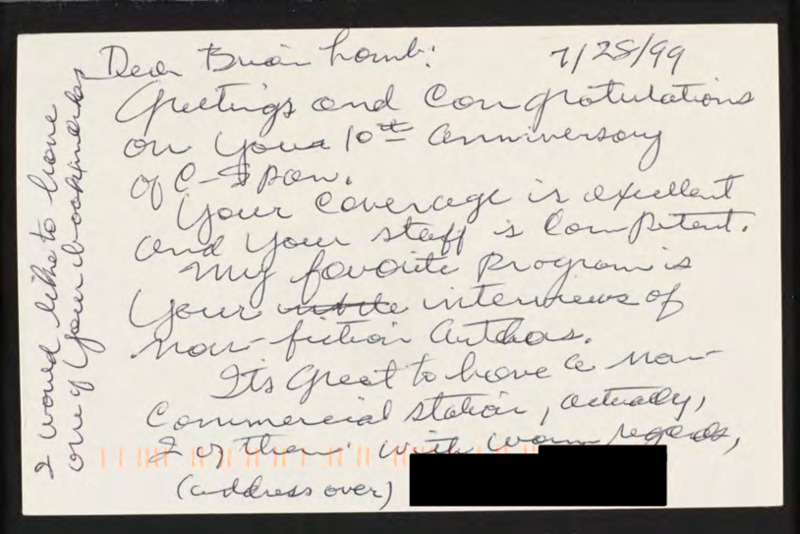 Dear Brian Lamb: 7/28/99
Greetings and Congratulations
on your 10th anniversary
of C-Span.
Your coverage is excellent
and your staff is competent.
My favorite program is
your interviews of
non-fiction authors.
Its great to have a non-
commercial station, actually,
2 of them. With warm regards,
(address over)
I would like to have
one of your bookmarks